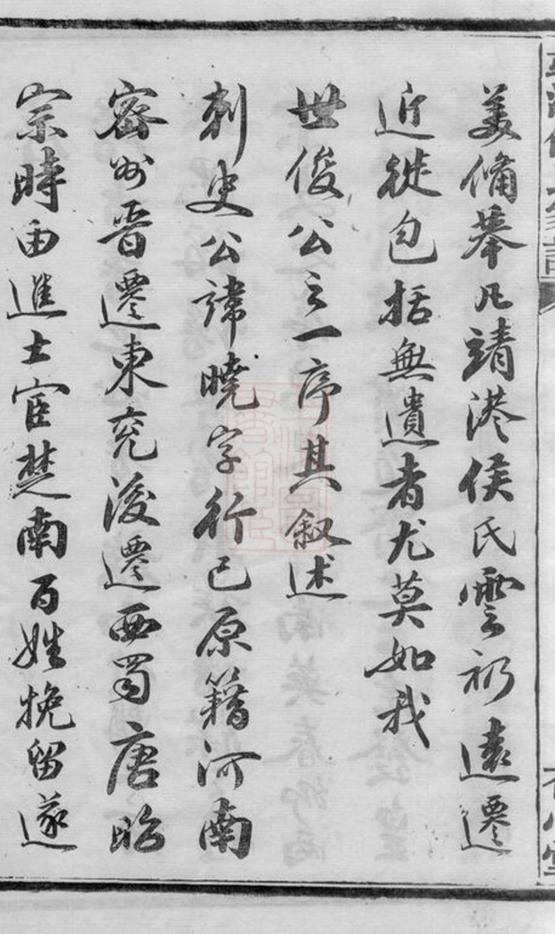 美備舉凡靖港侯氏雲礽遠遷
近徙包括無遺者尤莫如我
世俊公之一序其叙述
刺史公諱曉字行己原籍河南
密州晉遷東兖後遷西蜀唐昭
宗時由進士宦楚南百姓挽留遂